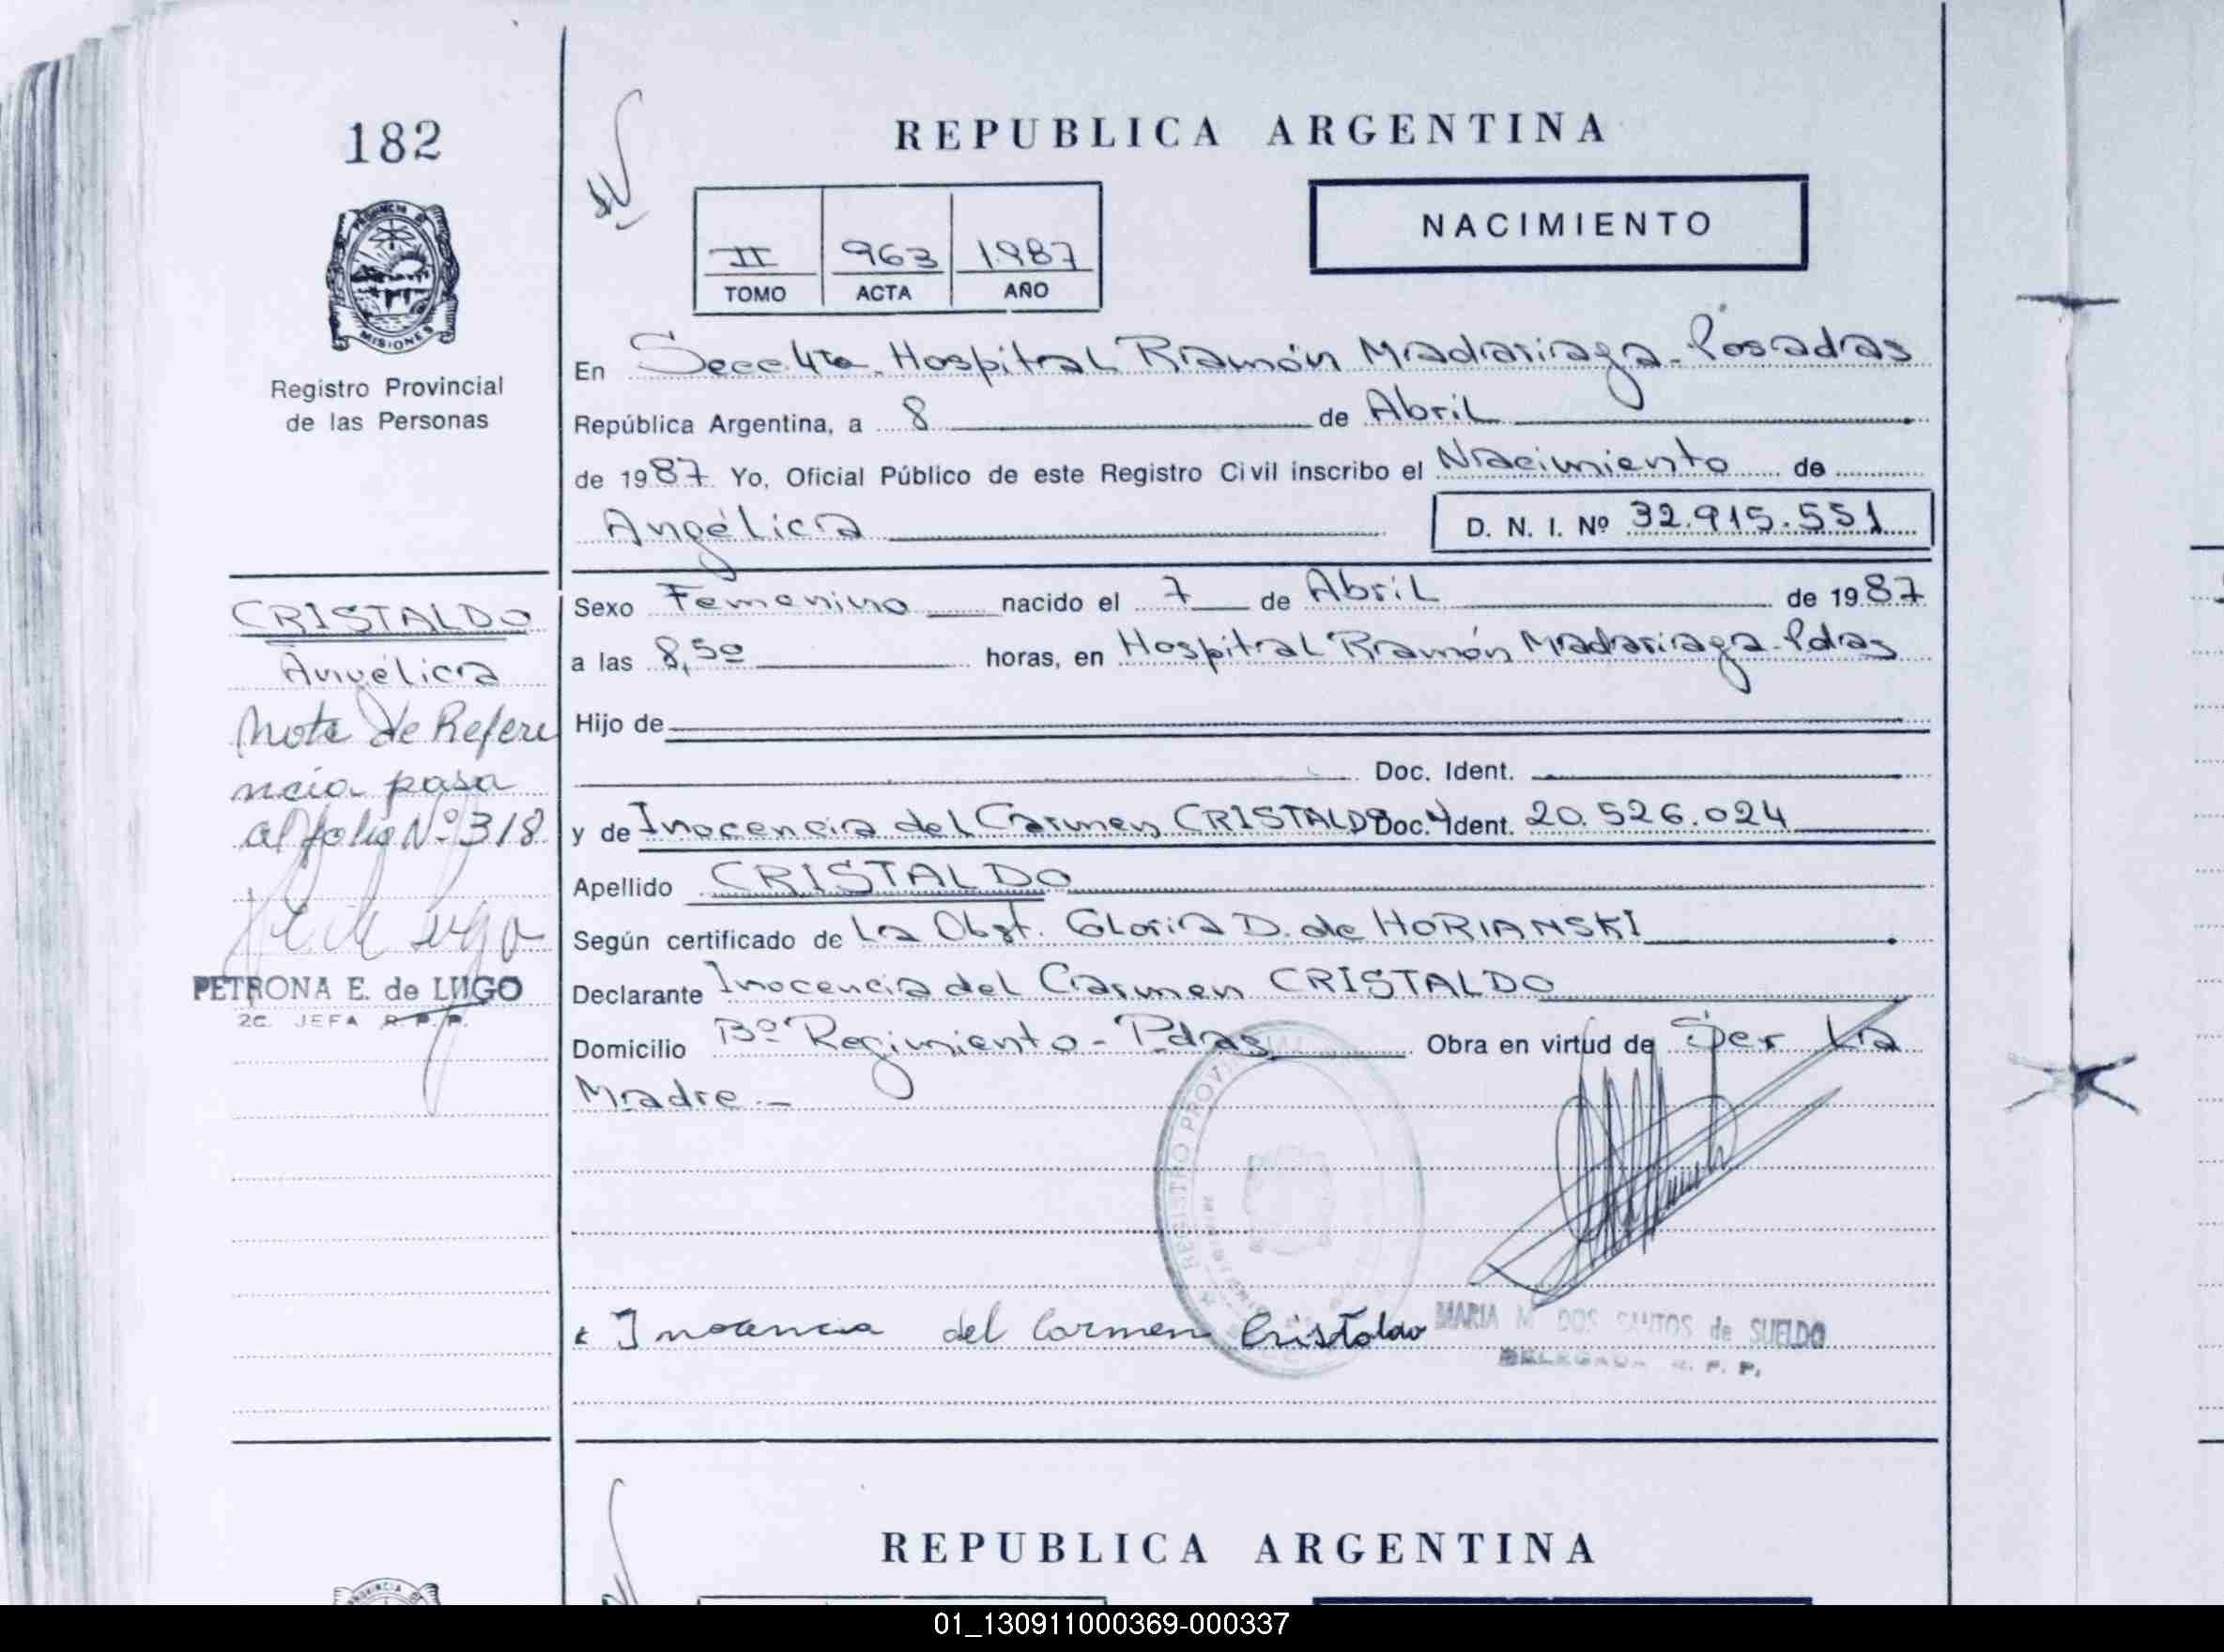 182
REPUBLICA ARGENTINA
NACIMIENTO
II 963 1987
TOMO ACTA AÑO
PROVINCIA DE MISIONES
Registro Provincial
de las Personas
En Secc. 4ta. Hospital Ramón Madariaga - Posadas
República Argentina, a 8 de Abril
de 1987 Yo, Oficial Público de este Registro Civil inscribo el Nacimiento de
Angélica D. N. I. Nº 32.915.551
CRISTALDO
Angélica
Nota de Refere
ncia pasa
al folio Nº 318
PETRONA E. de LUGO
2C. JEFA R. P. P.
Sexo Femenino nacido el 7 de Abril de 1987
a las 8,50 horas, en Hospital Ramón Madariaga - Pdas
Hijo de
Doc. Ident.
y de Inocencia del Carmen CRISTALDO Doc. Ident. 20.526.024
Apellido CRISTALDO
Según certificado de La Obst. Gloria D. de HORIANSKI
Declarante Inocencia del Carmen CRISTALDO
Domicilio Bº Regimiento - Pdas Obra en virtud de Ser La
Madre.-
REGISTRO PROVINCIAL
Inocencia del Carmen Cristaldo
MARIA M. DOS SANTOS de SUELDO
DELEGADA R. P. P.
REPUBLICA ARGENTINA
PROVINCIA
01_130911000369-000337